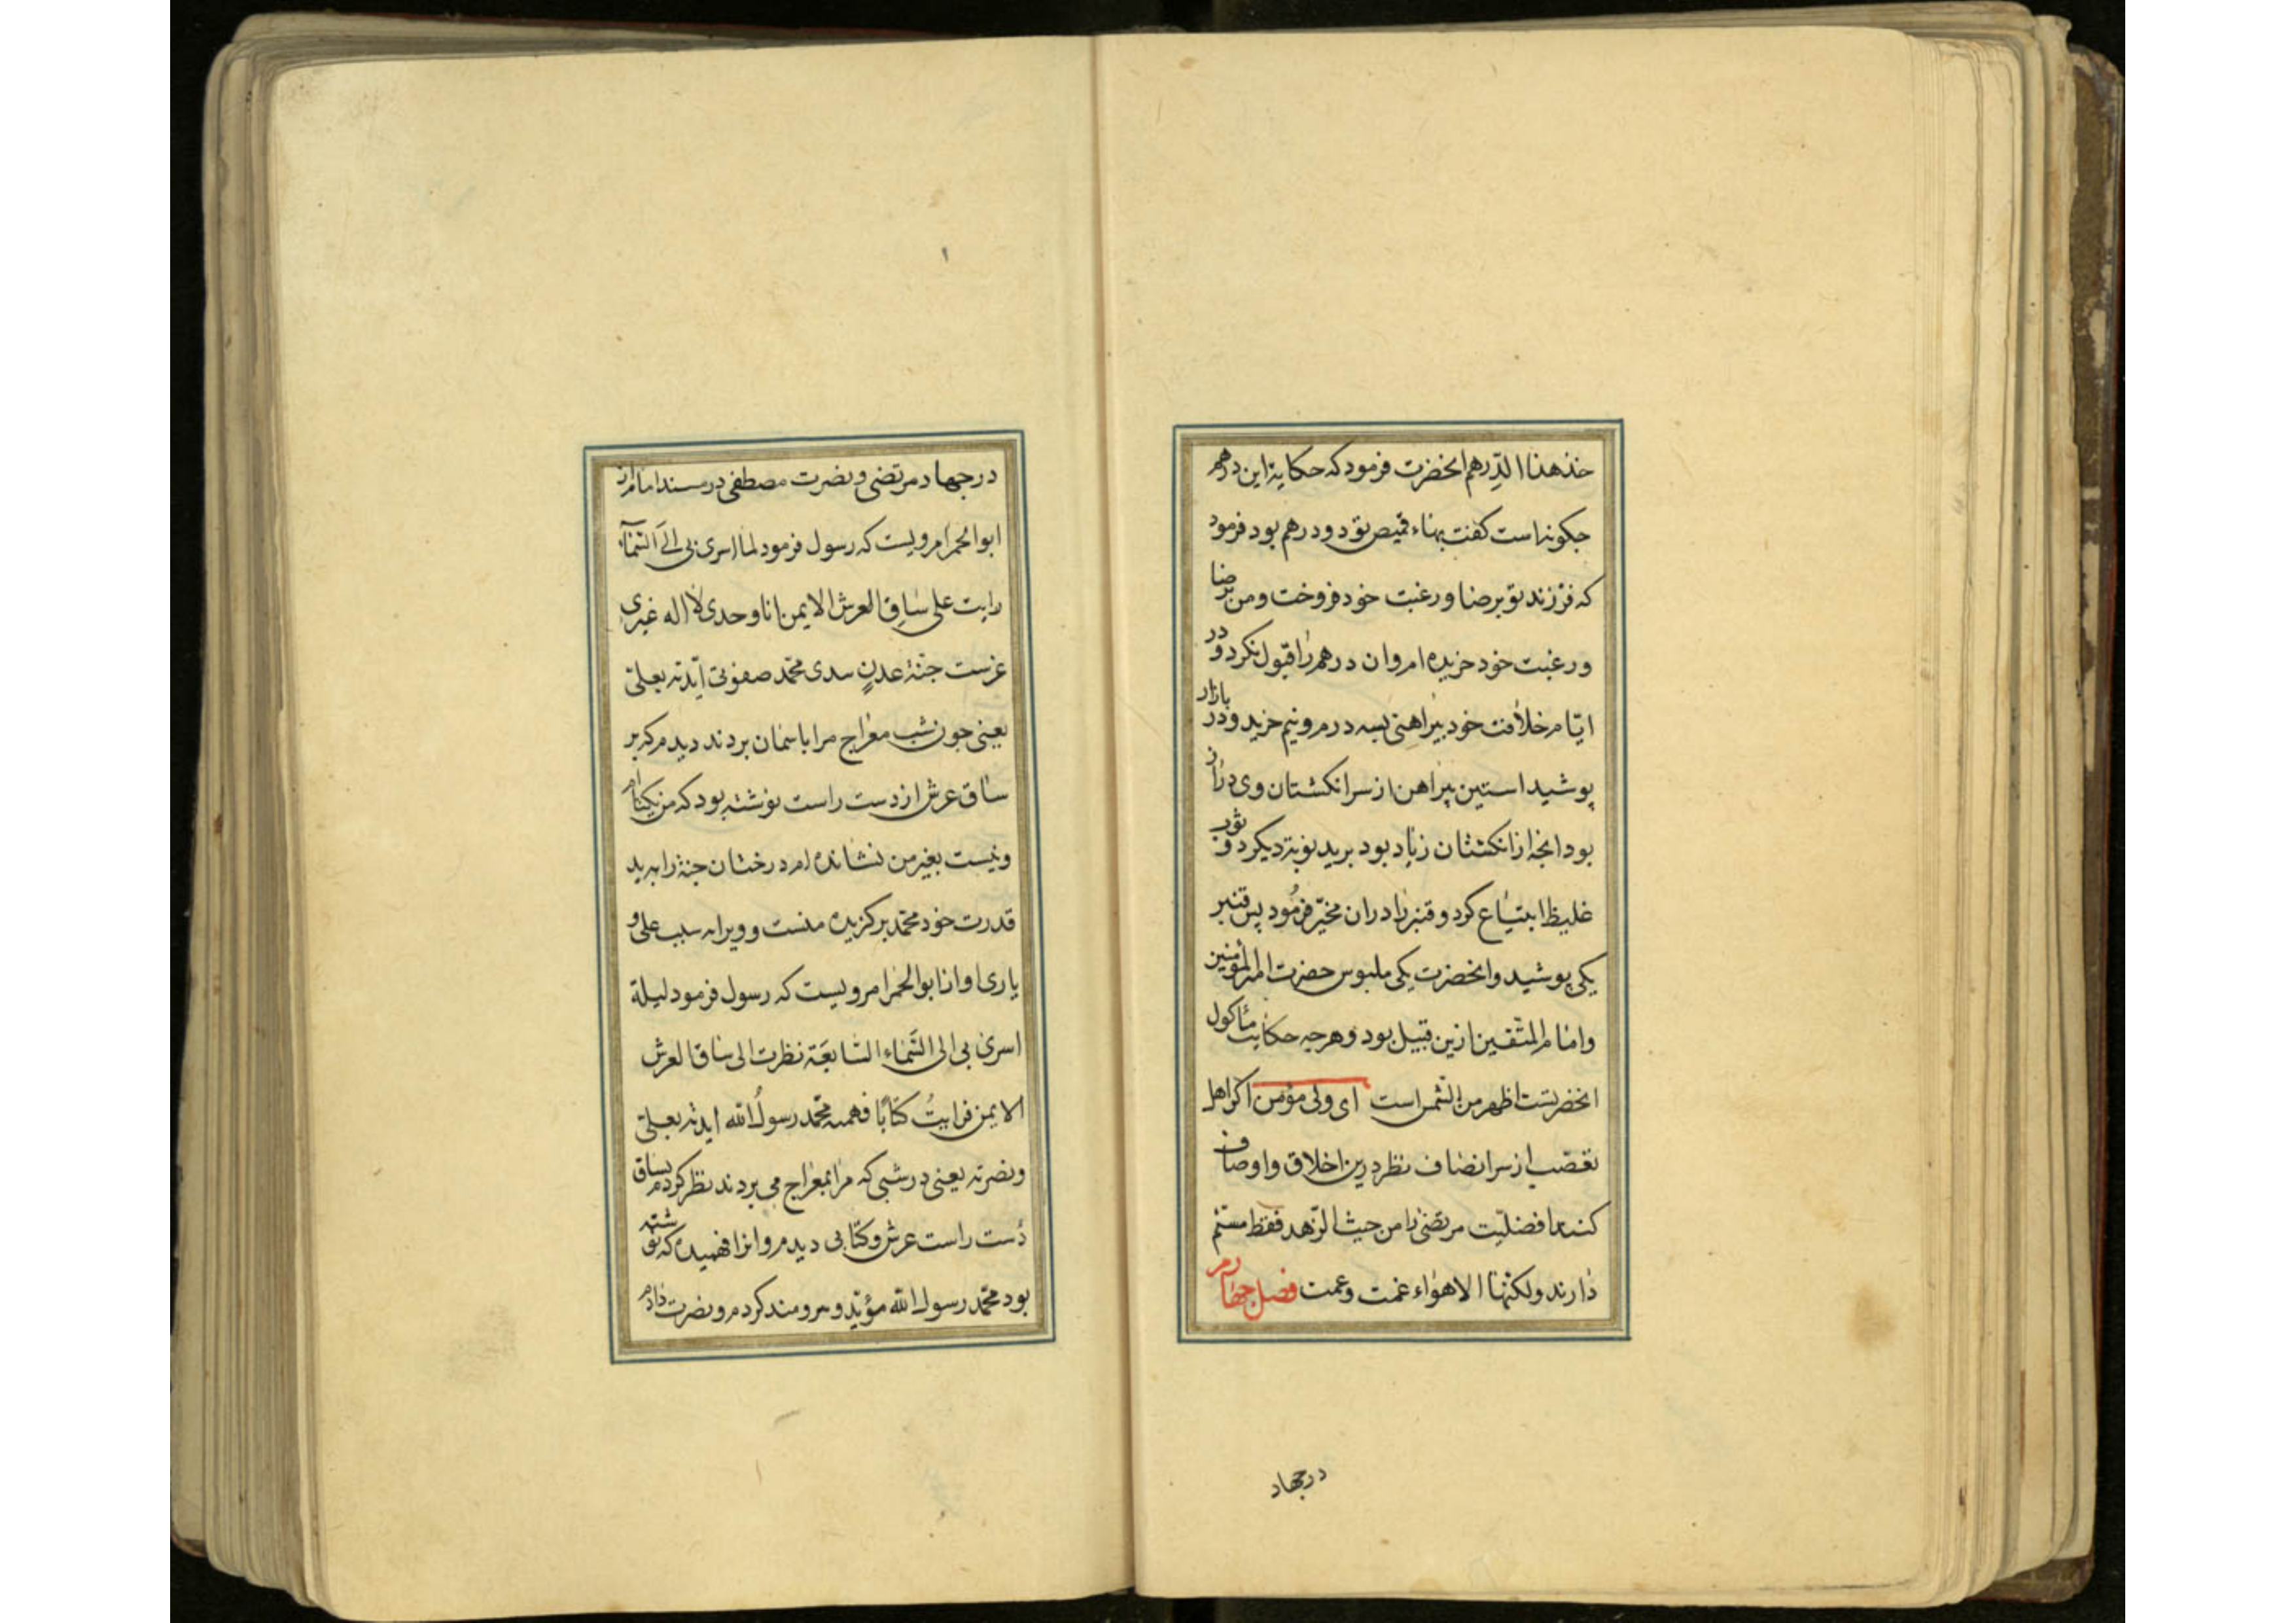 خذ هذا الدّرهم انحضرت فرمود که حکایة این درهم
جکونه است کفت بهاء قمیص تو دو درهم بود فرمود
که فرزند تو برضا و رغبت خود فروخت و من برضا
ورغبت خود خریده ام وان درهم را قبول نکرد و در
ایّام خلافت خود پیراهنی بسه درم ونیم خرید ودر بازار
پوشید استین پیراهن از سر انکشتان وی دراز
بود انجه از انکشتان زیاد بود برید نوبة دیکر دو ثوب
غلیظ ابتیاع کرد و قنبر را دران مخیّر فرمُود پس قنبر
یکی پوشید وانحضرت یکی ملبوس حضرت امیر المؤمنین
وامام المتّقین ازین قبیل بود وهرجه حکایت مأکول
انحضرتست اظهر من الشّمس است ای ولی مؤمن اکر اهل
تعصّب از سر انصاف نظر درین اخلاق و اوصاف
کنند افضلیّت مرتضی را من حیث الزّهد فقط مسلّم
دارند ولکنّها الاهواء عمّت وعمت فصل جهارم
درجهاد
درجهاد مرتضی ونصرت مصطفی در مسند امام از
ابو الحمرا مرویست که رسول فرمود لما اسری بی الَی السّماء
رایت علی ساقِ العرش الایمن انا وحدی لا اله غیری
غرست جنّة عدنٍ بیدی محمّد صفوتی ایّدته بعلیّ
یعنی جون شب معراج مرا باسمان بردند دیدم که بر
ساق عرش از دست راست نوشته بود که من یکتاام
ونیست بغیر من نشانده ام درختان جنة را بید
قدرت خود محمّد برکزیده منست و ویرا بسبب علی و
یاری او از ابو الحمرا مرویست که رسول فرمود لیلة
اسری بی الی السّماء السّابعَة نظرت الی ساق العرش
الایمن فرایتُ کتابًا فهمته محمّد رسولُ الله ایدته بعلیّ
ونصرته یعنی در شبی که مرا بمعراج می بردند نظر کردم بساق
دست راست عرش وکتابی دیدم وانرا فهمیدم که نوشته
بود محمّد رسول الله مؤیّد و برومند کردم ونصرت دادم